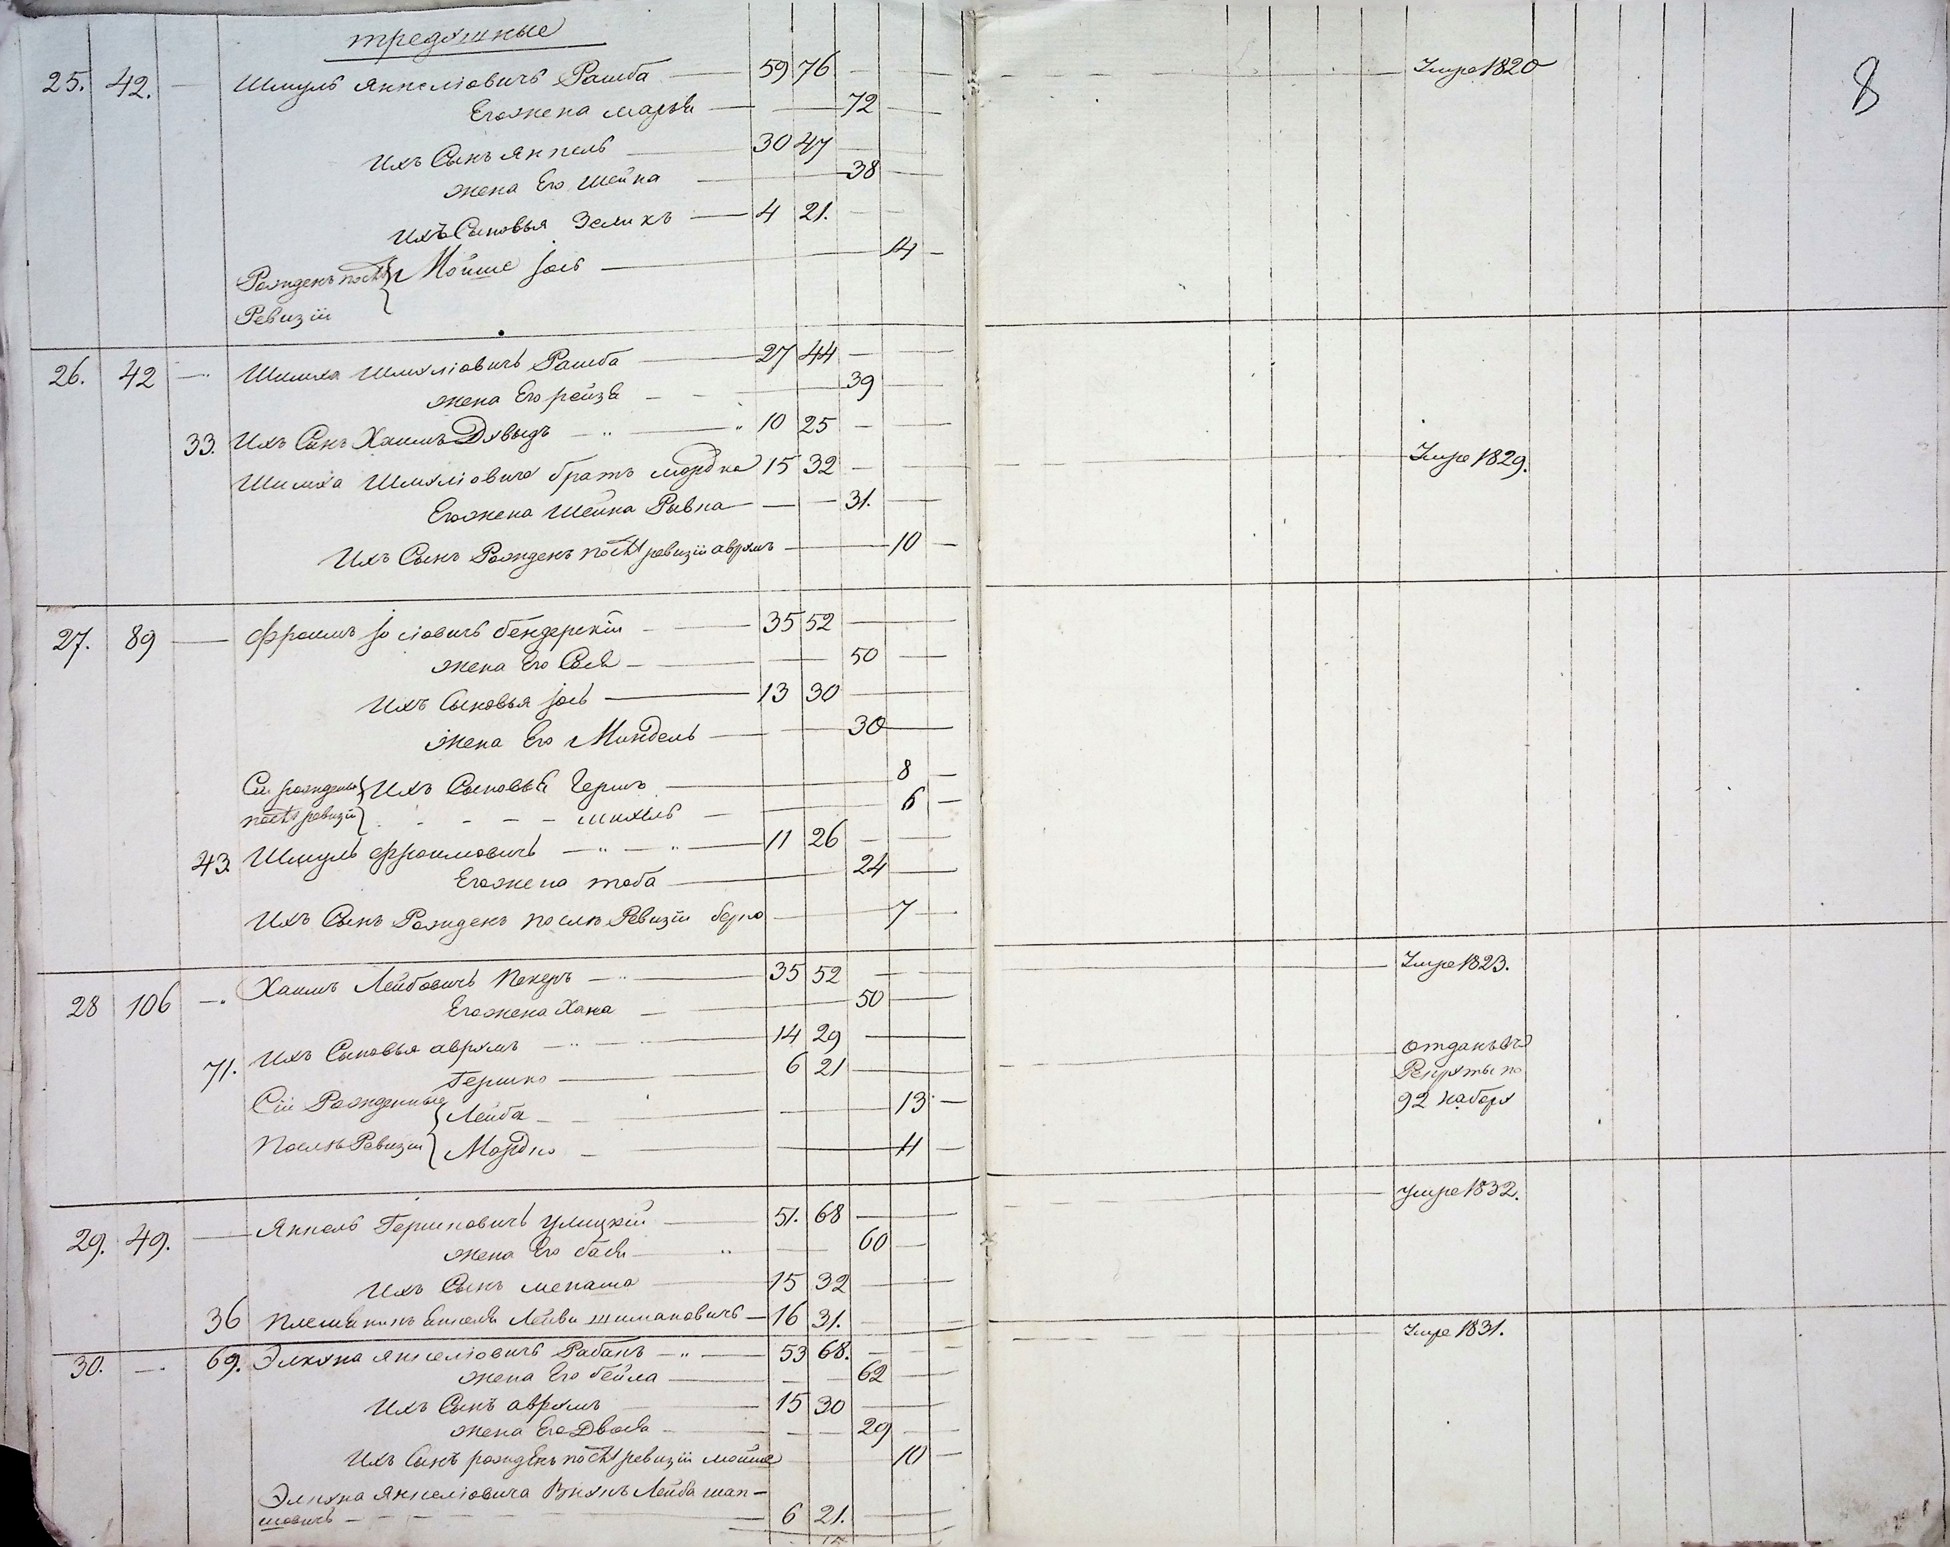 8
25. 42. — Шмуль Янкеліовичъ Рашба — 59 76 — Умре 1820
Его жена Марья — 72
Ихъ Сынъ Янкель — 30 47
жена Его Шейна — 38
Ихъ Сыновья Зеликъ — 4 21.
Рожденъ послѣ Ревизіи } Мойше Іось — 14
26. 42 — Шимха Шмуліовичъ Рашба — 27 44
жена Его рейзя — 39
33. Ихъ Сынъ Хаимъ Давыдъ — 10 25
Шимха Шмуліовича братъ мордко 15 32 — Умре 1829.
Его жена Шейна Рывка — 31.
Ихъ Сынъ Рожденъ послѣ ревизіи аврумъ — 10
27. 89 — Фроимъ Іосіовичъ бендерскій — 35 52
жена Его Сося — 50
Ихъ Сыновья Іось — 13 30
жена Его Миндель — 30
Сіи рожденые послѣ ревизіи } Ихъ Сыновья Гершъ — 8
— — — михель — 6
43. Шмуль Фроимовичъ — 11 26
Его жена тоба — 24
Ихъ Сынъ Рожденъ послѣ Ревизіи берко — 7
28 106 — Хаимъ Лейбовичъ Пекеръ — 35 52 — Умре 1823.
Его жена Хана — 50
71. Ихъ Сыновья аврумъ — 14 29
Гершко — 6 21 — отданъ въ Рекруты по 92 набору
Сіи Рожденные { Лейба — 13
Послѣ Ревизіи { Мордко — 11
29. 49. — Янкель Гершковичъ Улицкій — 51. 68 — умре 1832.
жена Его бася — 60
Ихъ Сынъ менаша — 15 32
36 Племянникъ Янкеля Лейви шимановичъ — 16 31. — Умре 1831.
30. — 69. Элкуна Янкеліовичъ Рабанъ — 53 68.
жена Его бейла — 62
Ихъ Сынъ аврумъ — 15 30
жена Его Двося — 29
Ихъ Сынъ рожденъ послѣ ревизіи мойше 10
Элкуна Янкеліовича Внукъ Лейба шап-
шовичъ — 6 21.